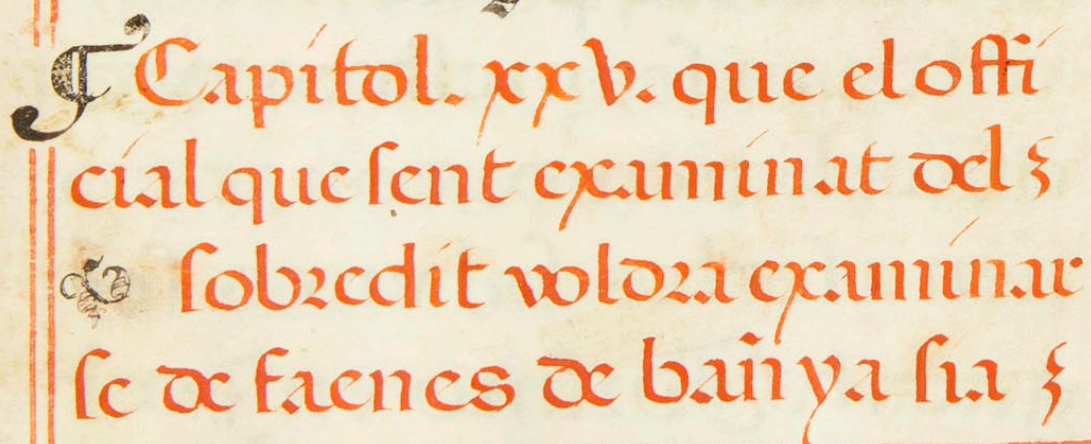 ¶ Capitol. xxv. que el offi
cial que sent examinat del
sobredit voldra examinar
se de faenes de banya sia